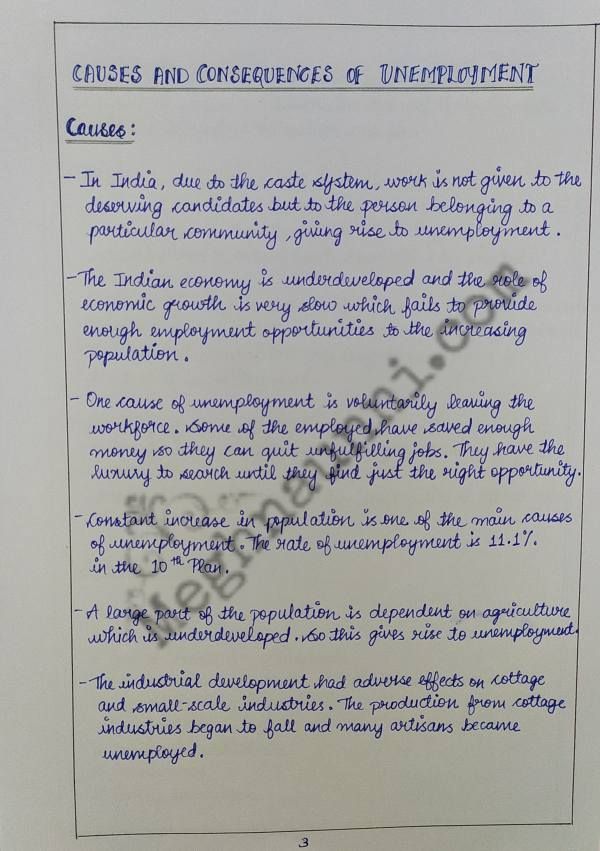 CAUSES AND CONSEQUENCES OF UNEMPLOYMENT
Causes:
- In India, due to the caste system, work is not given to the
deserving candidates but to the person belonging to a
particular community, giving rise to unemployment.
- The Indian economy is underdeveloped and the role of
economic growth is very slow which fails to provide
enough employment opportunities to the increasing
population.
- One cause of unemployment is voluntarily leaving the
workforce. Some of the employed have saved enough
money so they can quit unfulfilling jobs. They have the
luxury to search until they find just the right opportunity.
- Constant increase in population is one of the main causes
of unemployment. The rate of unemployment is 11.1%.
in the 10th Plan.
- A large part of the population is dependent on agriculture
which is underdeveloped. So this gives rise to unemployment.
- The industrial development had adverse effects on cottage
and small-scale industries. The production from cottage
industries began to fall and many artisans became
unemployed.
3